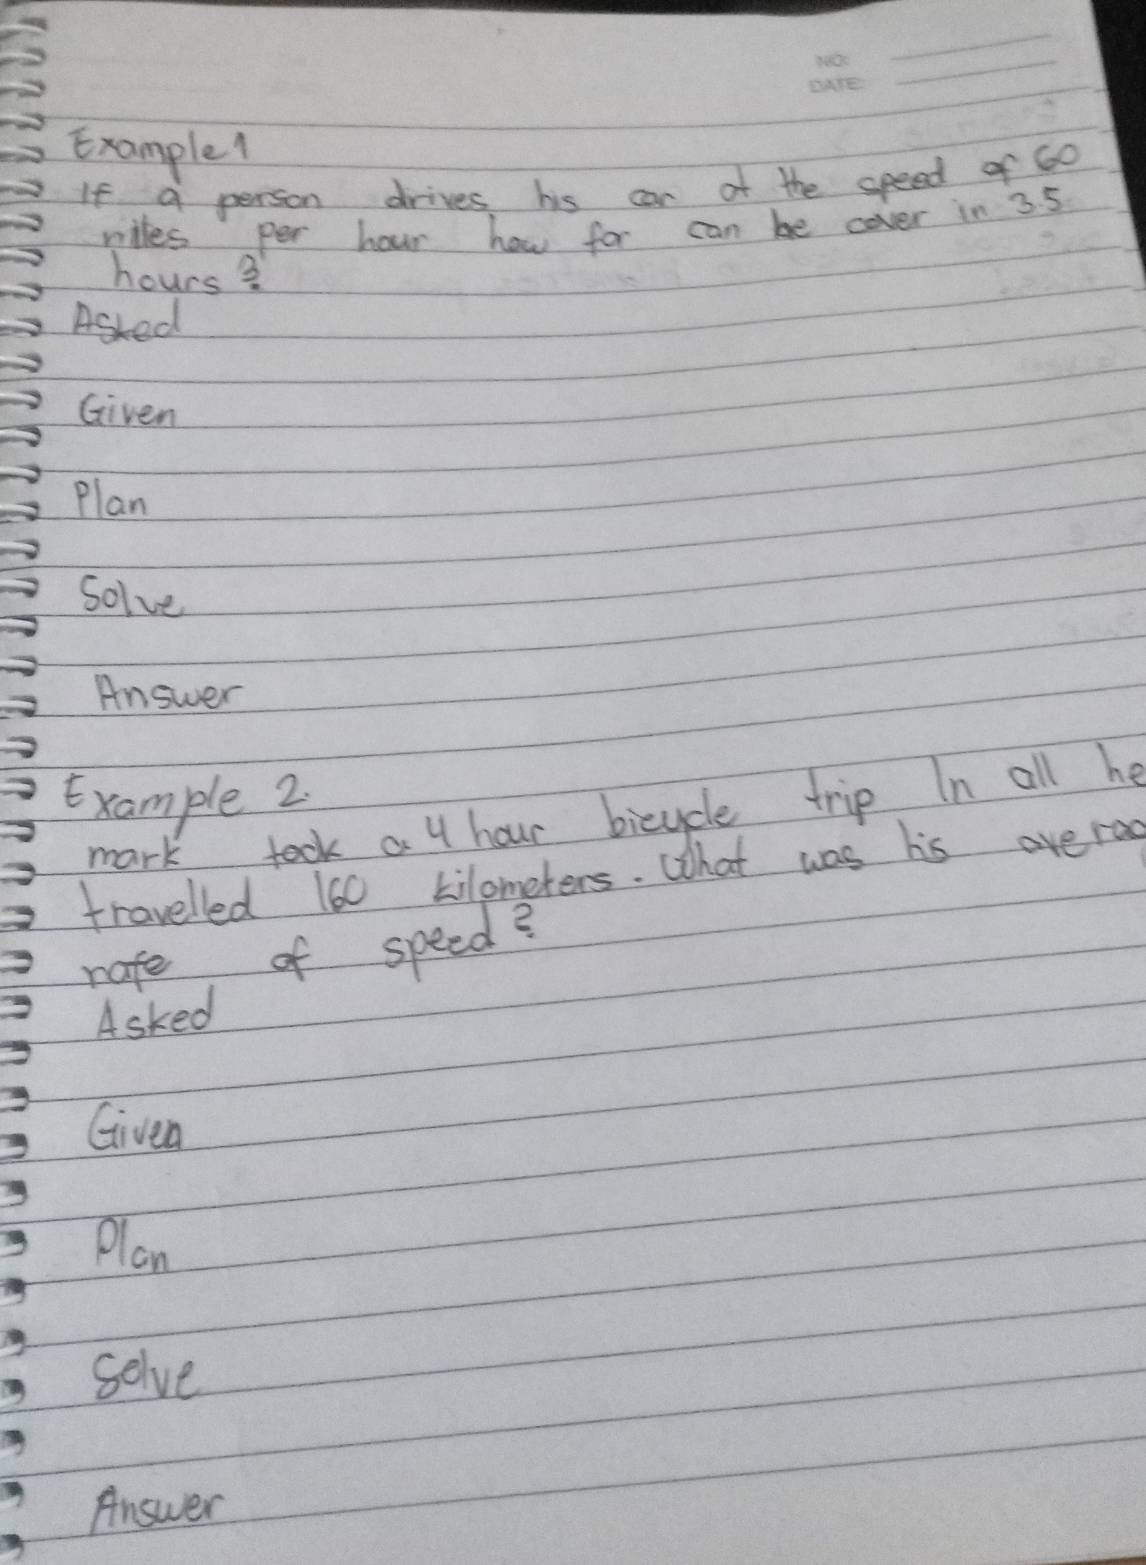 NO:
DATE:
Example 1
If a person drives his car at the speed of 60
miles per hour how far can be cover in 3.5
hours?
Asked
Given
Plan
Solve
Answer
Example 2.
mark took a 4 hour bicycle trip In all he
travelled 160 kilometers. What was his averag
rate of speed?
Asked
Given
Plan
Solve
Answer